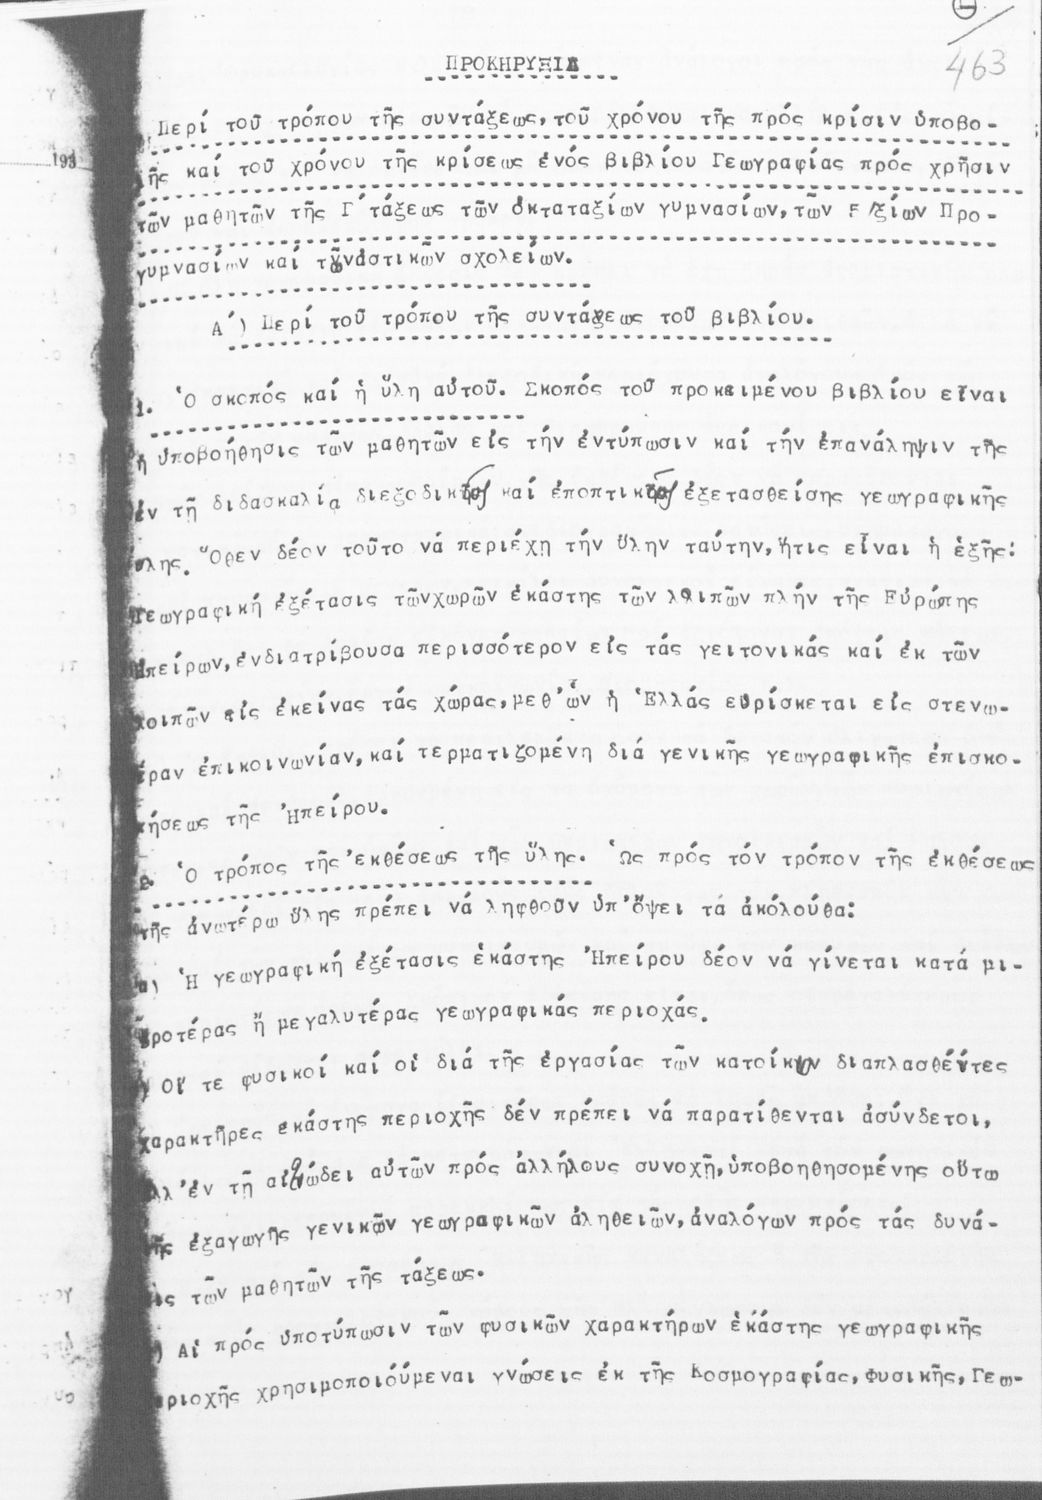 1
463
ΠΡΟΚΗΡΥΞΙΣ
Περί τοῦ τρόπου τῆς συντάξεως, τοῦ χρόνου τῆς πρός κρίσιν ὑποβο-
193
λῆς καί τοῦ χρόνου τῆς κρίσεως ἑνός βιβλίου Γεωγραφίας πρός χρῆσιν
τῶν μαθητῶν τῆς Γ΄ τάξεως τῶν ὀκταταξίων γυμνασίων, τῶν ε/ξίων Προ-
γυμνασίων καί τῶν ἀστικῶν σχολείων.
Α΄) Περί τοῦ τρόπου τῆς συντάξεως τοῦ βιβλίου.
1. Ὁ σκοπός καί ἡ ὕλη αὐτοῦ. Σκοπός τοῦ προκειμένου βιβλίου εἶναι
ἡ ὑποβοήθησις τῶν μαθητῶν εἰς τήν ἐντύπωσιν καί τήν ἐπανάληψιν τῆς
ἐν τῇ διδασκαλίᾳ διεξοδικῶς καί ἐποπτικῶς ἐξετασθείσης γεωγραφικῆς
ὕλης. Ὅθεν δέον τοῦτο νά περιέχῃ τήν ὕλην ταύτην, ἥτις εἶναι ἡ ἑξῆς:
Γεωγραφική ἐξέτασις τῶνχωρῶν ἑκάστης τῶν λοιπῶν πλήν τῆς Εὐρώπης
Ἠπείρων, ἐνδιατρίβουσα περισσότερον εἰς τάς γειτονικάς καί ἐκ τῶν
λοιπῶν εἰς ἐκείνας τάς χώρας, μεθ' ὧν ἡ Ἑλλάς εὑρίσκεται εἰς στενω-
τέραν ἐπικοινωνίαν, καί τερματιζομένη διά γενικῆς γεωγραφικῆς ἐπισκο-
πήσεως τῆς Ἠπείρου.
2. Ὁ τρόπος τῆς 'εκθέσεως τῆς ὕλης. Ὡς πρός τόν τρόπον τῆς ἐκθέσεως
τῆς ἀνωτέρω ὕλης πρέπει νά ληφθοῦν ὑπ' ὄψει τά ἀκόλούθα:
α) Ἡ γεωγραφική ἐξέτασις ἑκάστης Ἠπείρου δέον νά γίνεται κατά μι-
κροτέρας ἤ μεγαλυτέρας γεωγραφικάς περιοχάς.
) Οἵ τε φυσικοί καί οἱ διά τῆς ἐργασίας τῶν κατοίκων διαπλασθέντες
χαρακτῆρες ἑκάστης περιοχῆς δέν πρέπει νά παρατίθενται ἀσύνδετοι,
ἀλλ' ἐν τῇ αἰθώδει αὐτῶν πρός ἀλλήλους συνοχῇ, ὑποβοηθησομένης οὕτω
τῆς ἐξαγωγῆς γενικῶν γεωγραφικῶν ἀληθειῶν, ἀναλόγων πρός τάς δυνά-
ις τῶν μαθητῶν τῆς τάξεως.
) Αἱ πρός ὑποτύπωσιν τῶν φυσικῶν χαρακτήρων ἑκάστης γεωγραφικῆς
εριοχῆς χρησιμοποιούμεναι γνώσεις ἐκ τῆς Κοσμογραφίας, Φυσικῆς, Γεω-